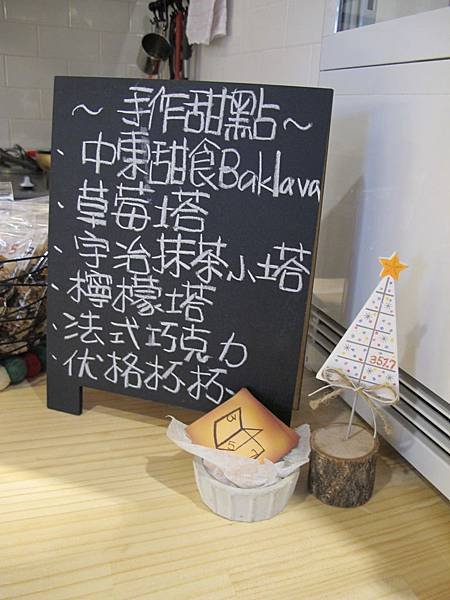 ～ 手作甜點～
· 中東甜食Baklava
· 草莓塔
· 宇治抹茶小塔
· 檸檬塔
· 法式巧克力
· 优格杯杯
357.7
3
5